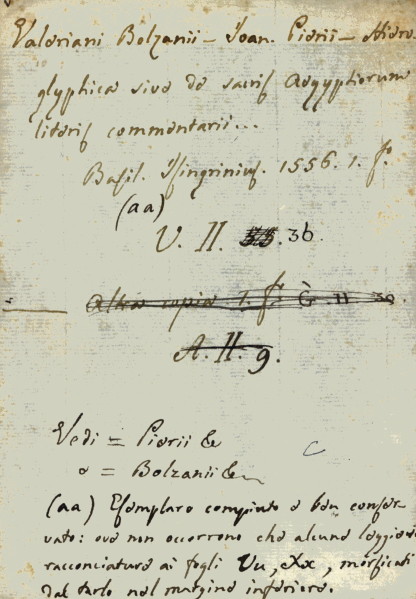 Valeriani Bolzanii – Joan. Pierii – Hiero
glyphica sive de sacris Aegyptiorum
literis commentarii...
Basil. Isingrinius. 1556. 1. f.
(aa)
V. II. 36.
Altra copia 1. f. G. II 30.
A. II. 9.
Vedi = Pierii &
e = Bolzanii &
(aa) Esemplare compiuto e ben conser-
vato: ove non occorrono che alcune leggiere
racconciature ai fogli Vu, Xx, morsicati
dal tarlo nel margine inferiore.